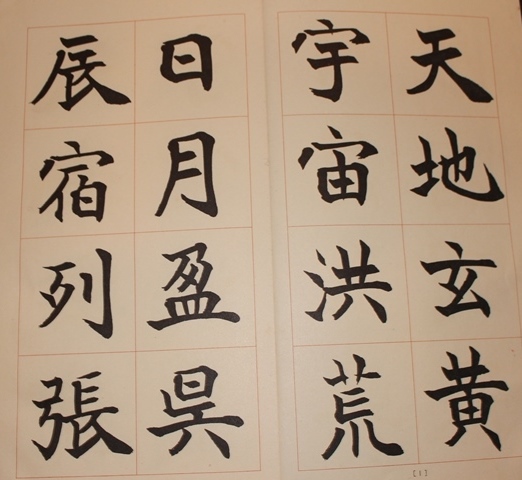 天地玄黄
宇宙洪荒
日月盈昃
辰宿列張
[1]